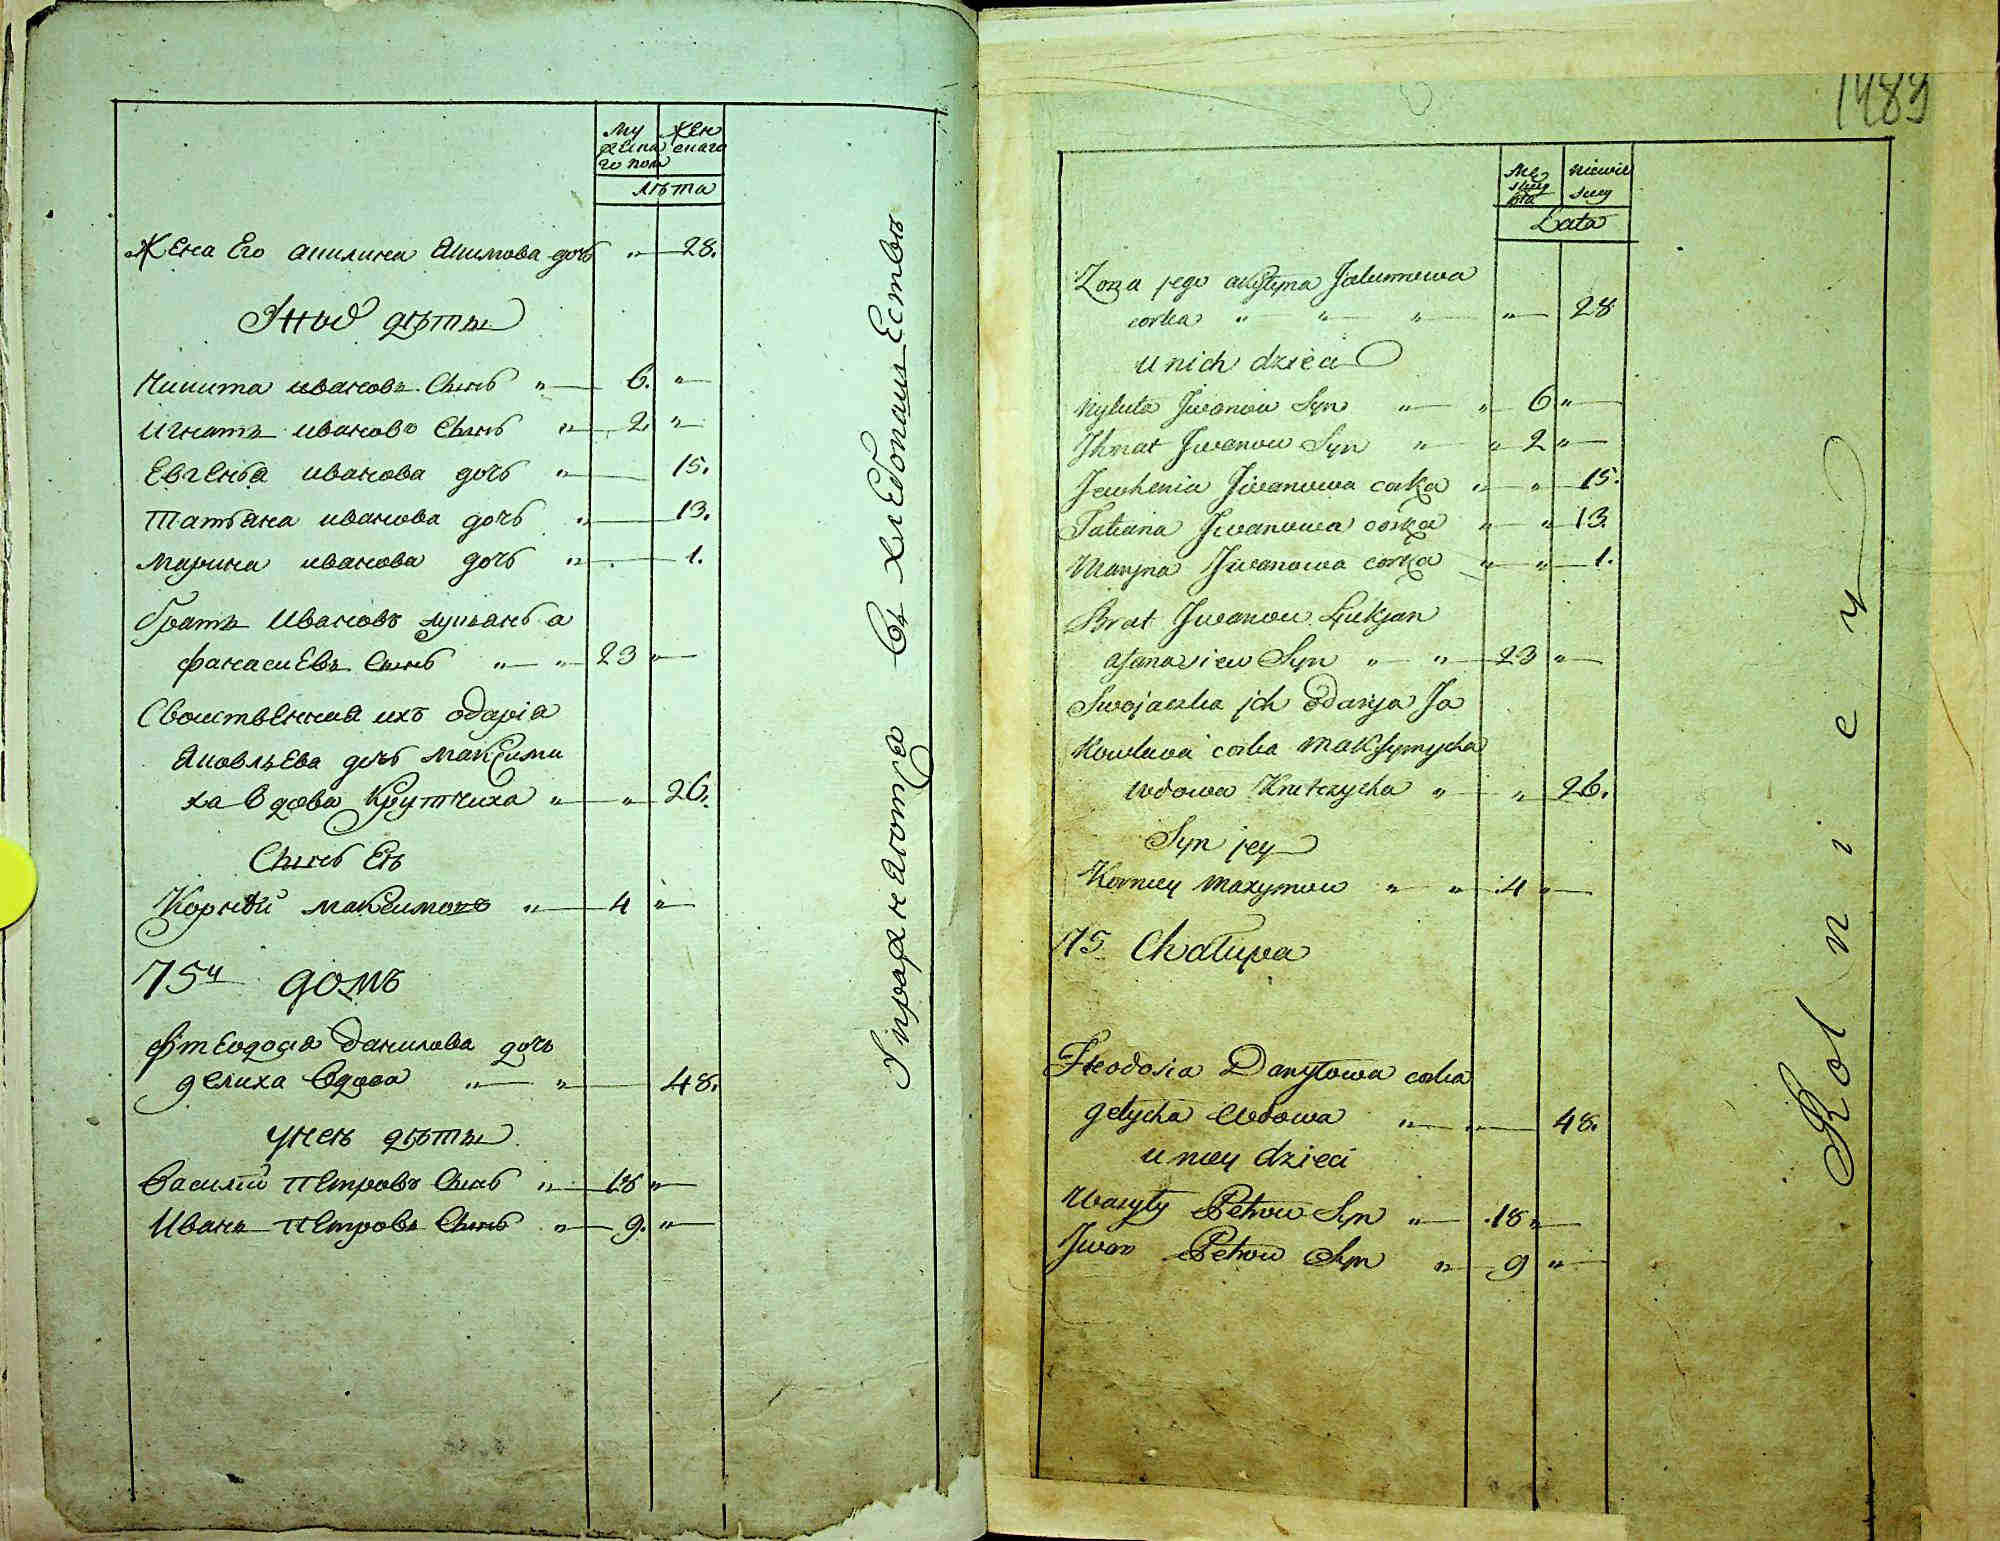 Му Жен
жеска скаго
го пола
лѣта
Жена Его Акилина Акимова дочь „ 28.
У них дѣти
Никита иванов Сынъ „ 6. „
Игнатъ ивановъ Сынъ „ 2 „
Евгенья иванова дочь „ 15.
Татьяна иванова дочь „ 13.
Марина иванова дочь „ 1.
братъ Ивановъ лукьянъ а
фанасиевъ Сынъ „ „ 23 „
Свойственная ихъ одарія
Яковльева дочь максими
ха вдова Крутчиха „ „ 26.
Сынъ Еѣ
Корнѣй максимовъ „ 4 „
75й домъ
Фтеодосія данилова дочь
делиха вдова „ „ 48.
у неѣ дѣти
Василій Петровъ Сынъ „ 18 „
Иванъ Петровъ Сынъ „ 9. „
Хлебопашествѣ
1489
Mę niewie
skiey sciey
płci
Lata
Zona jego akilyna Jakimowa
corka „ „ „ „ 28
u nich dzieci
Nykita Jwanow Syn „ „ 6 „
Jhnat Jwanow Syn „ „ 2 „
Jewhenia Jwanowa corka „ „ 15.
Tatiana Jwanowa corka „ „ 13.
Maryna Jwanowa corka „ „ 1.
Brat Jwanow Łukjan
afanasiew Syn „ „ 23 „
Swojaczka ich Odarya Ja
kowlewa corka Maksymycha
wdowa Krutczycha „ „ 26.
Syn jey
Korniey Maxymow „ „ 4 „
75 Chałupa
Fteodosia Danyłowa corka
gełycha wdowa „ „ 48.
u niey dzieci
Wasyly Petrow Syn „ 18 „
Jwan Petrow Syn „ 9 „
Rolnicy